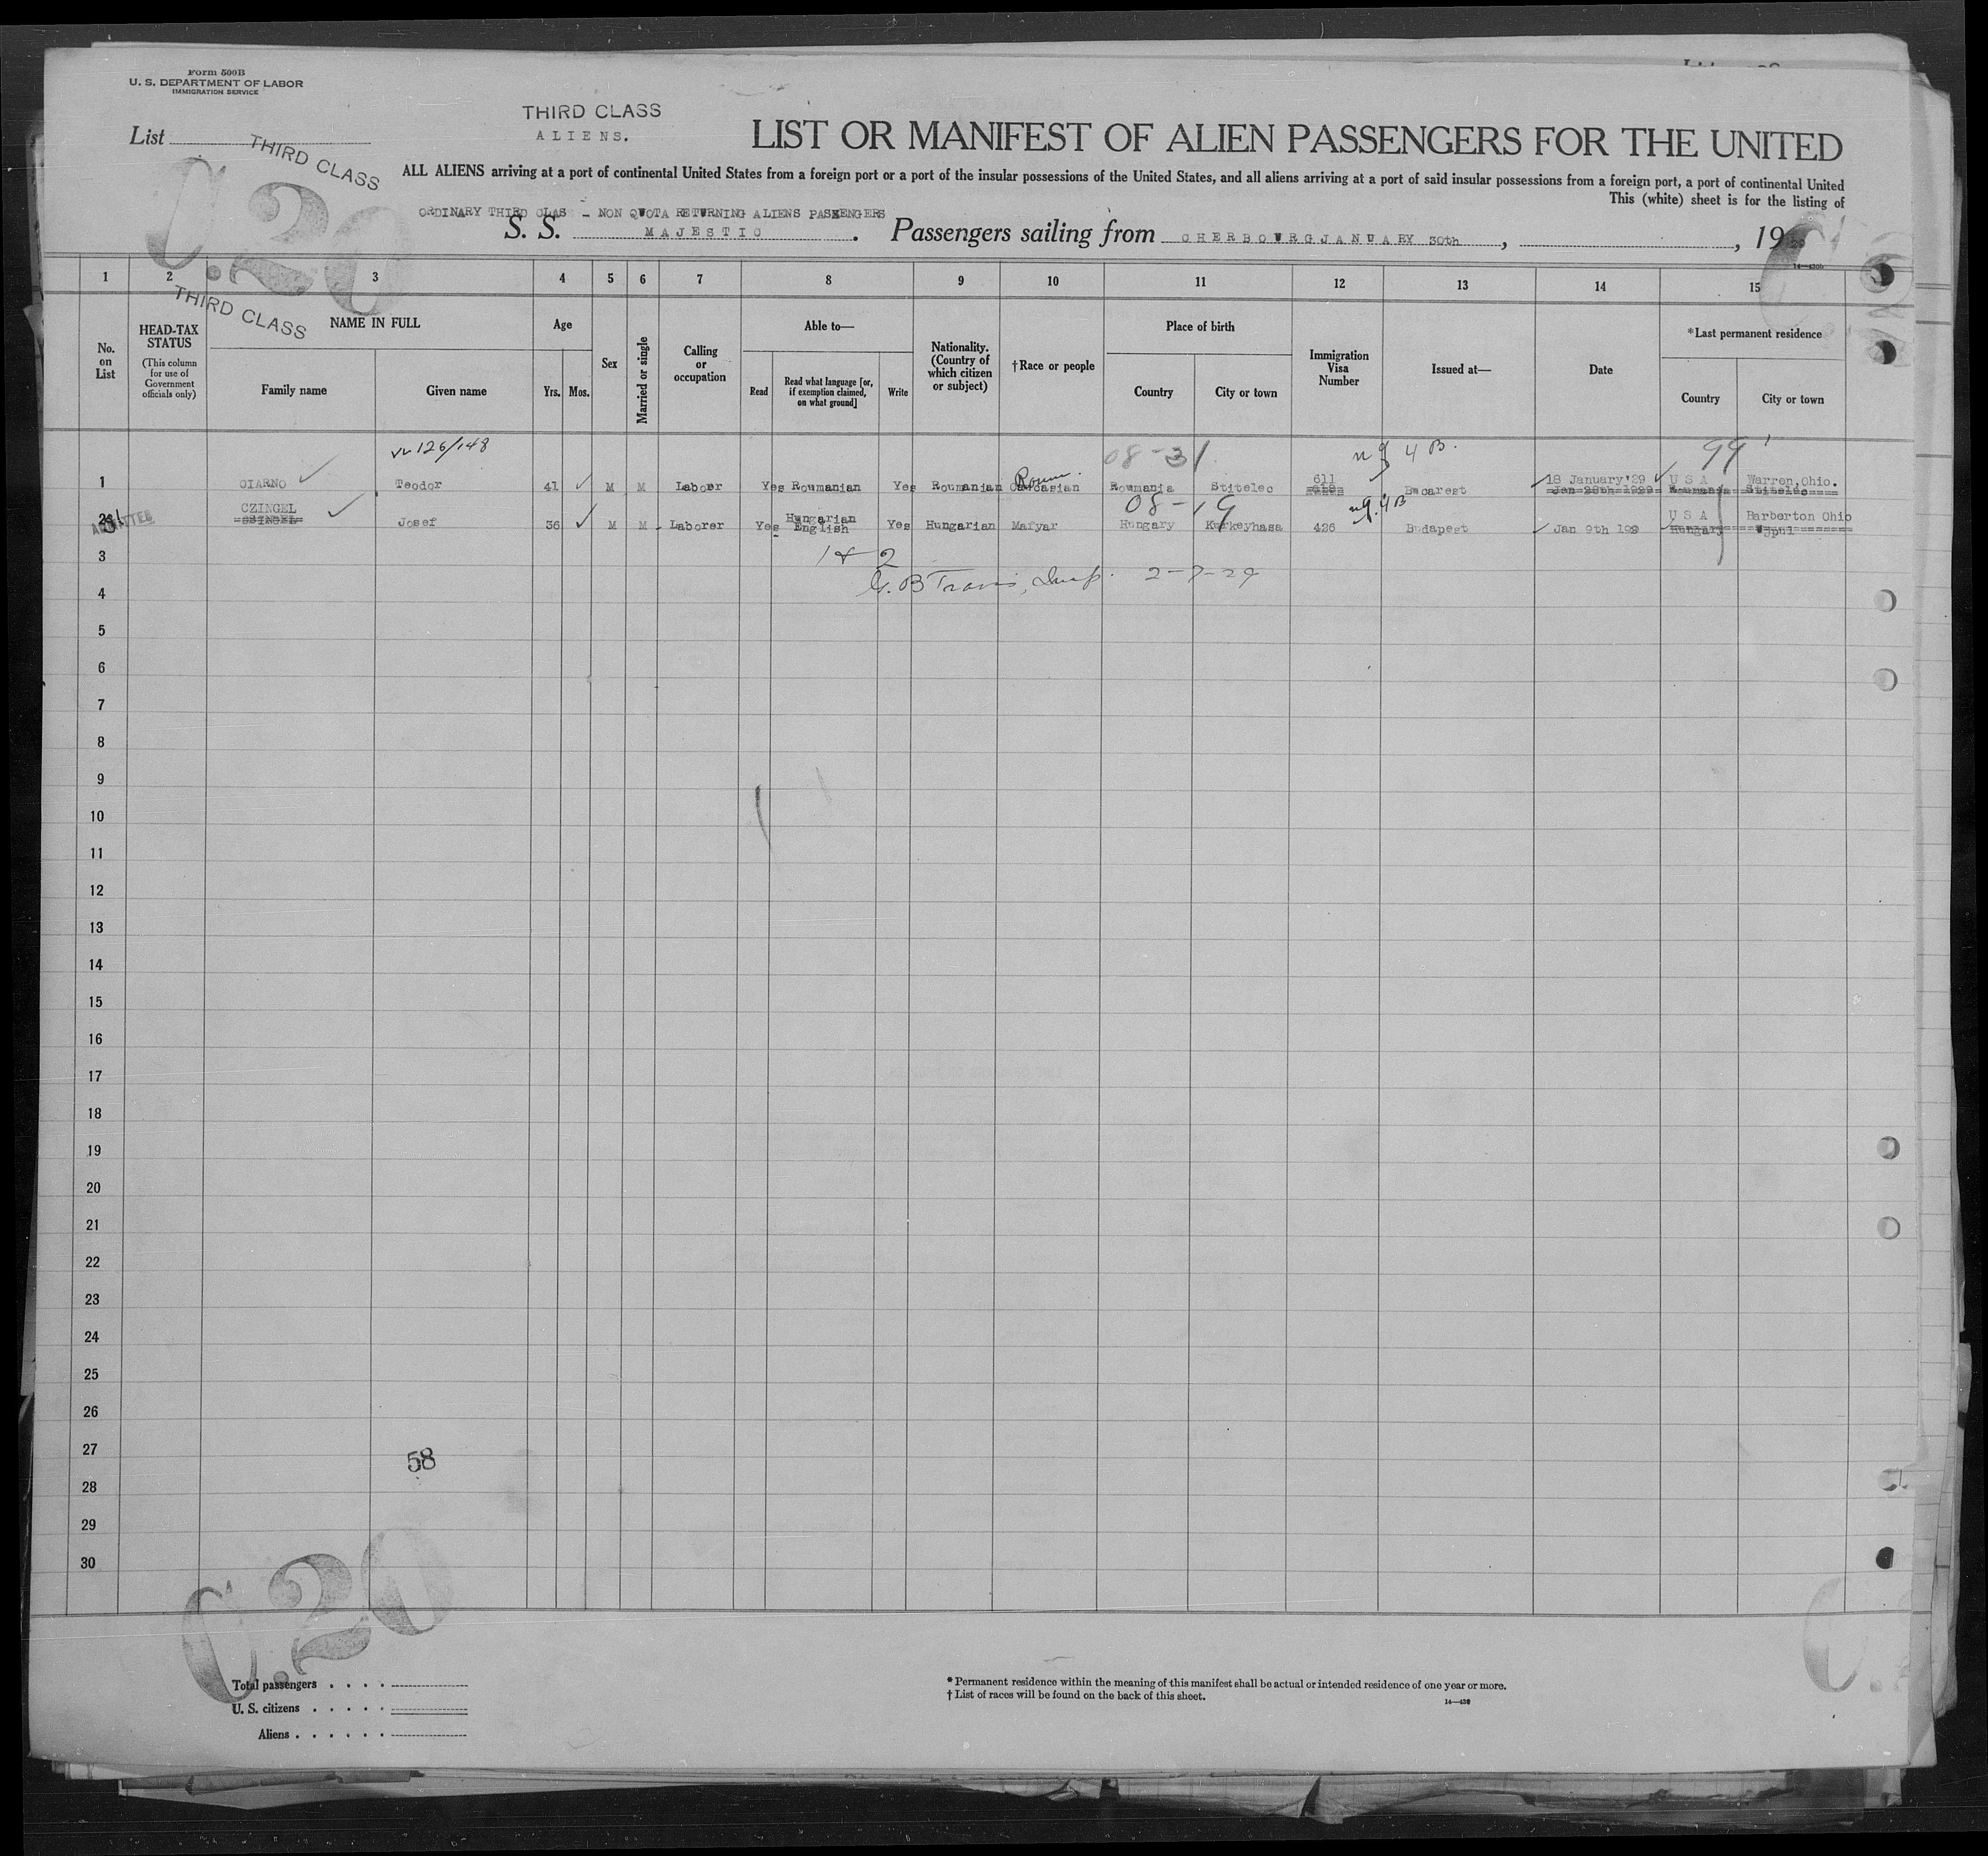 Form 500B
U. S. DEPARTMENT OF LABOR
IMMIGRATION SERVICE
List
THIRD CLASS
THIRD CLASS
ALIENS.
LIST OR MANIFEST OF ALIEN PASSENGERS FOR THE UNITED
C.20
ALL ALIENS arriving at a port of continental United States from a foreign port or a port of the insular possessions of the United States, and all aliens arriving at a port of said insular possessions from a foreign port, a port of continental United
This (white) sheet is for the listing of
ORDINARY THIRD CLAS - NON QUOTA RETURNING ALIENS PASSENGERS
S. S. MAJESTIC. Passengers sailing from CHERBOURG JANUARY 30th, , 19
1 2 3 4 5 6 7 8 9 10 11 12 13 14 15
THIRD CLASS
No. on List
HEAD-TAX STATUS
(This column for use of Government officials only)
NAME IN FULL
Family name
Given name
Age
Yrs.
Mos.
Sex
Married or single
Calling or occupation
Able to—
Read
Read what language [or, if exemption claimed, on what ground]
Write
Nationality. (Country of which citizen or subject)
†Race or people
Place of birth
Country
City or town
Immigration Visa Number
Issued at—
Date
*Last permanent residence
Country
City or town
126/148
08-31
nq 4 B.
99
1 CIARNO Teodor 41 M M Laborer Yes Roumanian Yes Roumanian Caucasian Roum. Roumania Stitelec 611 Bucarest 18 January'29 U S A Warren, Ohio.
Jan 28th 1929 Roumania Stitelec
08-19
nq. 4B
ADMITTED
2 CZINGEL Josef 36 M M Laborer Yes Hungarian English Yes Hungarian Mafyar Hungary Kerkeyhasa 426 Budapest Jan 9th 192 U S A Barberton Ohio
Hungary
3
1 & 2
4
G. B Travis, Insp. 2-7-29
5
6
7
8
9
10
11
12
13
14
15
16
17
18
19
20
21
22
23
24
25
26
27
58
28
29
30
C.20
Total passengers
U. S. citizens
Aliens
* Permanent residence within the meaning of this manifest shall be actual or intended residence of one year or more.
† List of races will be found on the back of this sheet.
14—430